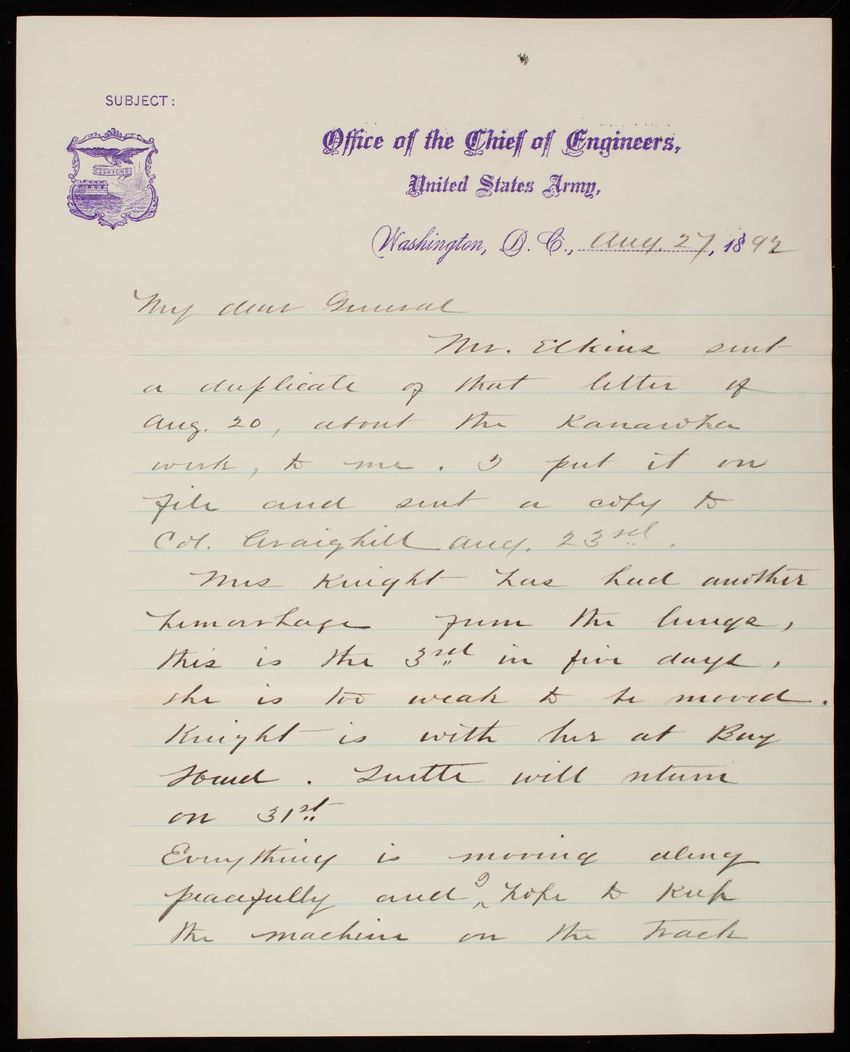 SUBJECT:
ESSAYONS
Office of the Chief of Engineers,
United States Army,
Washington, D. C., Aug. 27, 1892
My dear General
Mr. Elkins sent
a duplicate of that letter of
Aug. 20, about the Kanawha
work, to me. I put it on
file and sent a copy to
Col. Craighill Aug. 23rd.
Mrs Knight has had another
hemorrhage from the lungs,
this is the 3rd in five days,
she is too weak to be moved.
Knight is with her at Bay
Head. Turtle will return
on 31st
Everything is moving along
peacefully and I hope to keep
the machine on the track